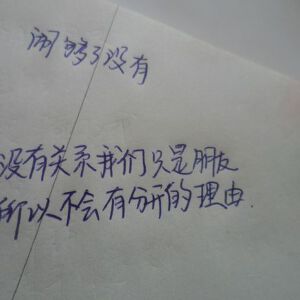 闹够了没有
没有关系我们只是朋友
所以不会有分开的理由.